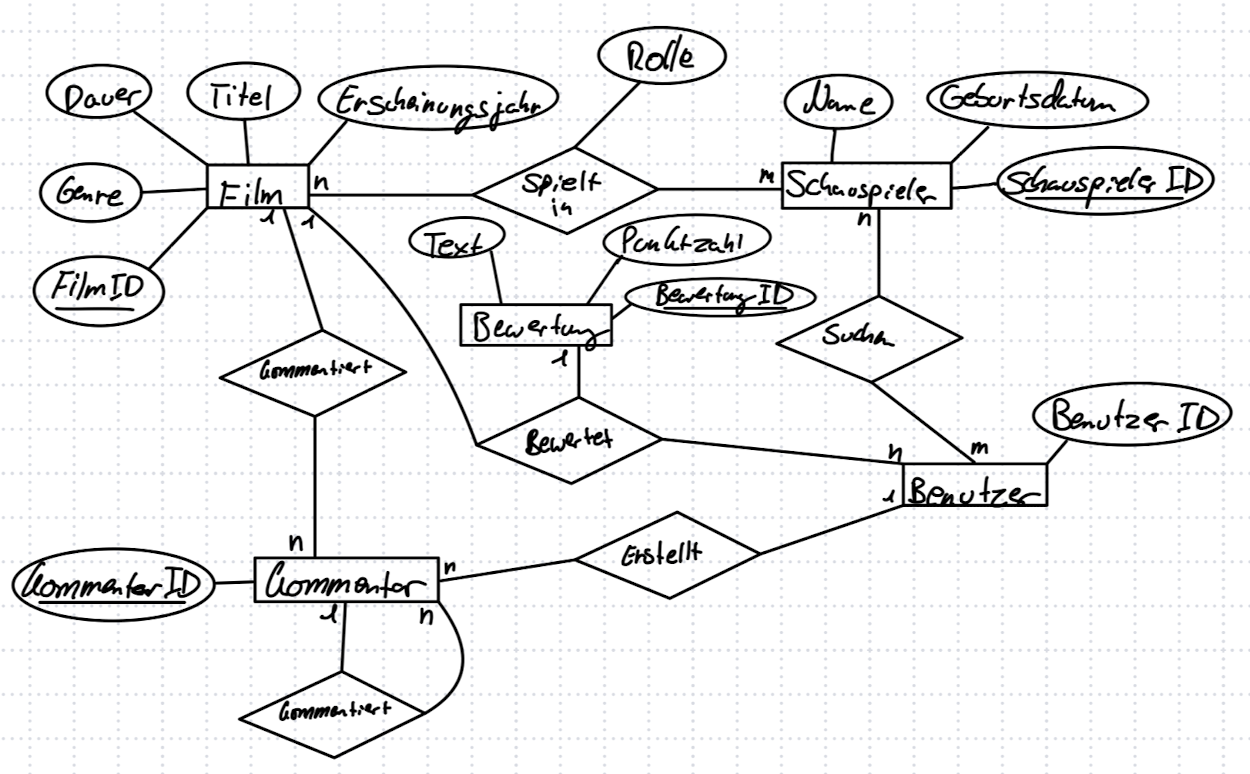 Rolle
Dauer
Titel
Erscheinungsjahr
Name
Geburtsdatum
Genre
Film
n
Spielt
in
m
Schauspieler
Schauspieler ID
1
1
n
Text
Punktzahl
Film ID
Bewertung ID
Bewertung
1
Suchen
Kommentiert
Benutzer ID
Bewertet
n
m
1
Benutzer
n
Erstellt
n
Kommentar ID
Kommentar
1
n
Kommentiert